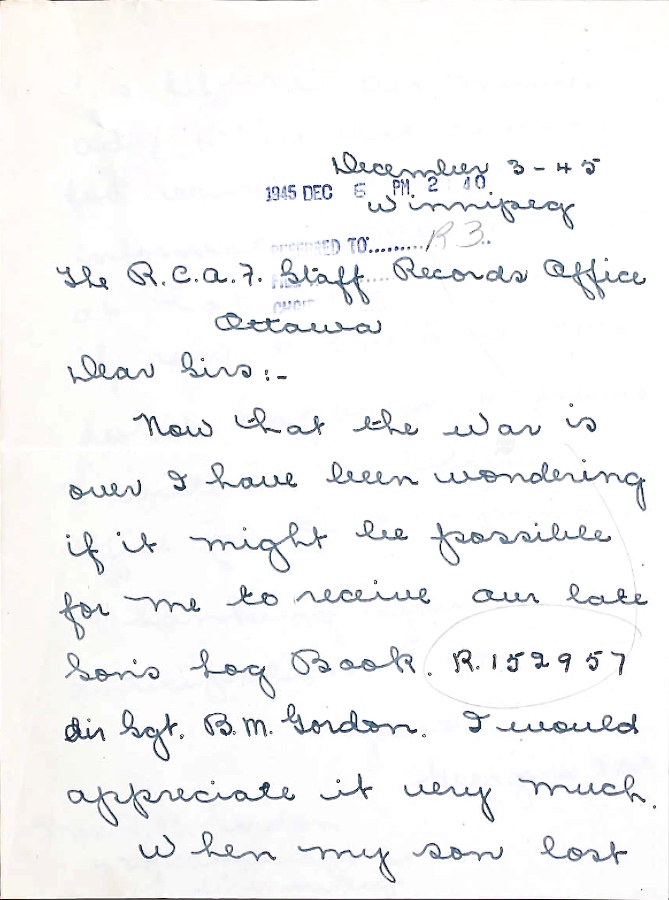 December 3-45
1945 DEC 6 PM 2 40
Winnipeg
REFERRED TO......... R3..
The R.C.A.F. Staff Records Office
Ottawa
Dear Sirs:-
Now that the war is
over I have been wondering
if it might be possible
for me to receive our late
Son's Log Book. R.152957
Air Sgt. B.M. Gordon. I would
appreciate it very much.
When my son lost